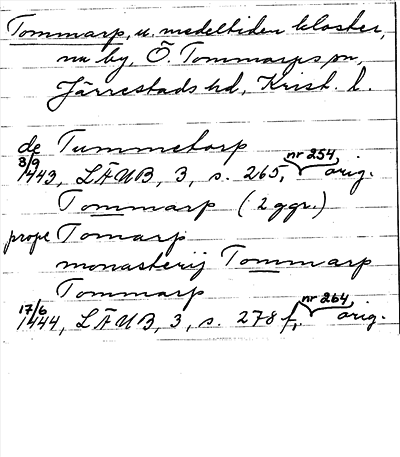 Tommarp, u. medeltiden kloster,
nu by, Ö. Tommarps sn,
Järrestads hd, Krist. l.
de Tummetorp
8/9 1443, LÄUB, 3, s. 265, nr 254, orig.
Tommarp (2 ggr.)
prope Tomarp
monasterij Tommarp
Tommarp
17/6 1444, LÄUB, 3, s. 278 f, nr 264, orig.